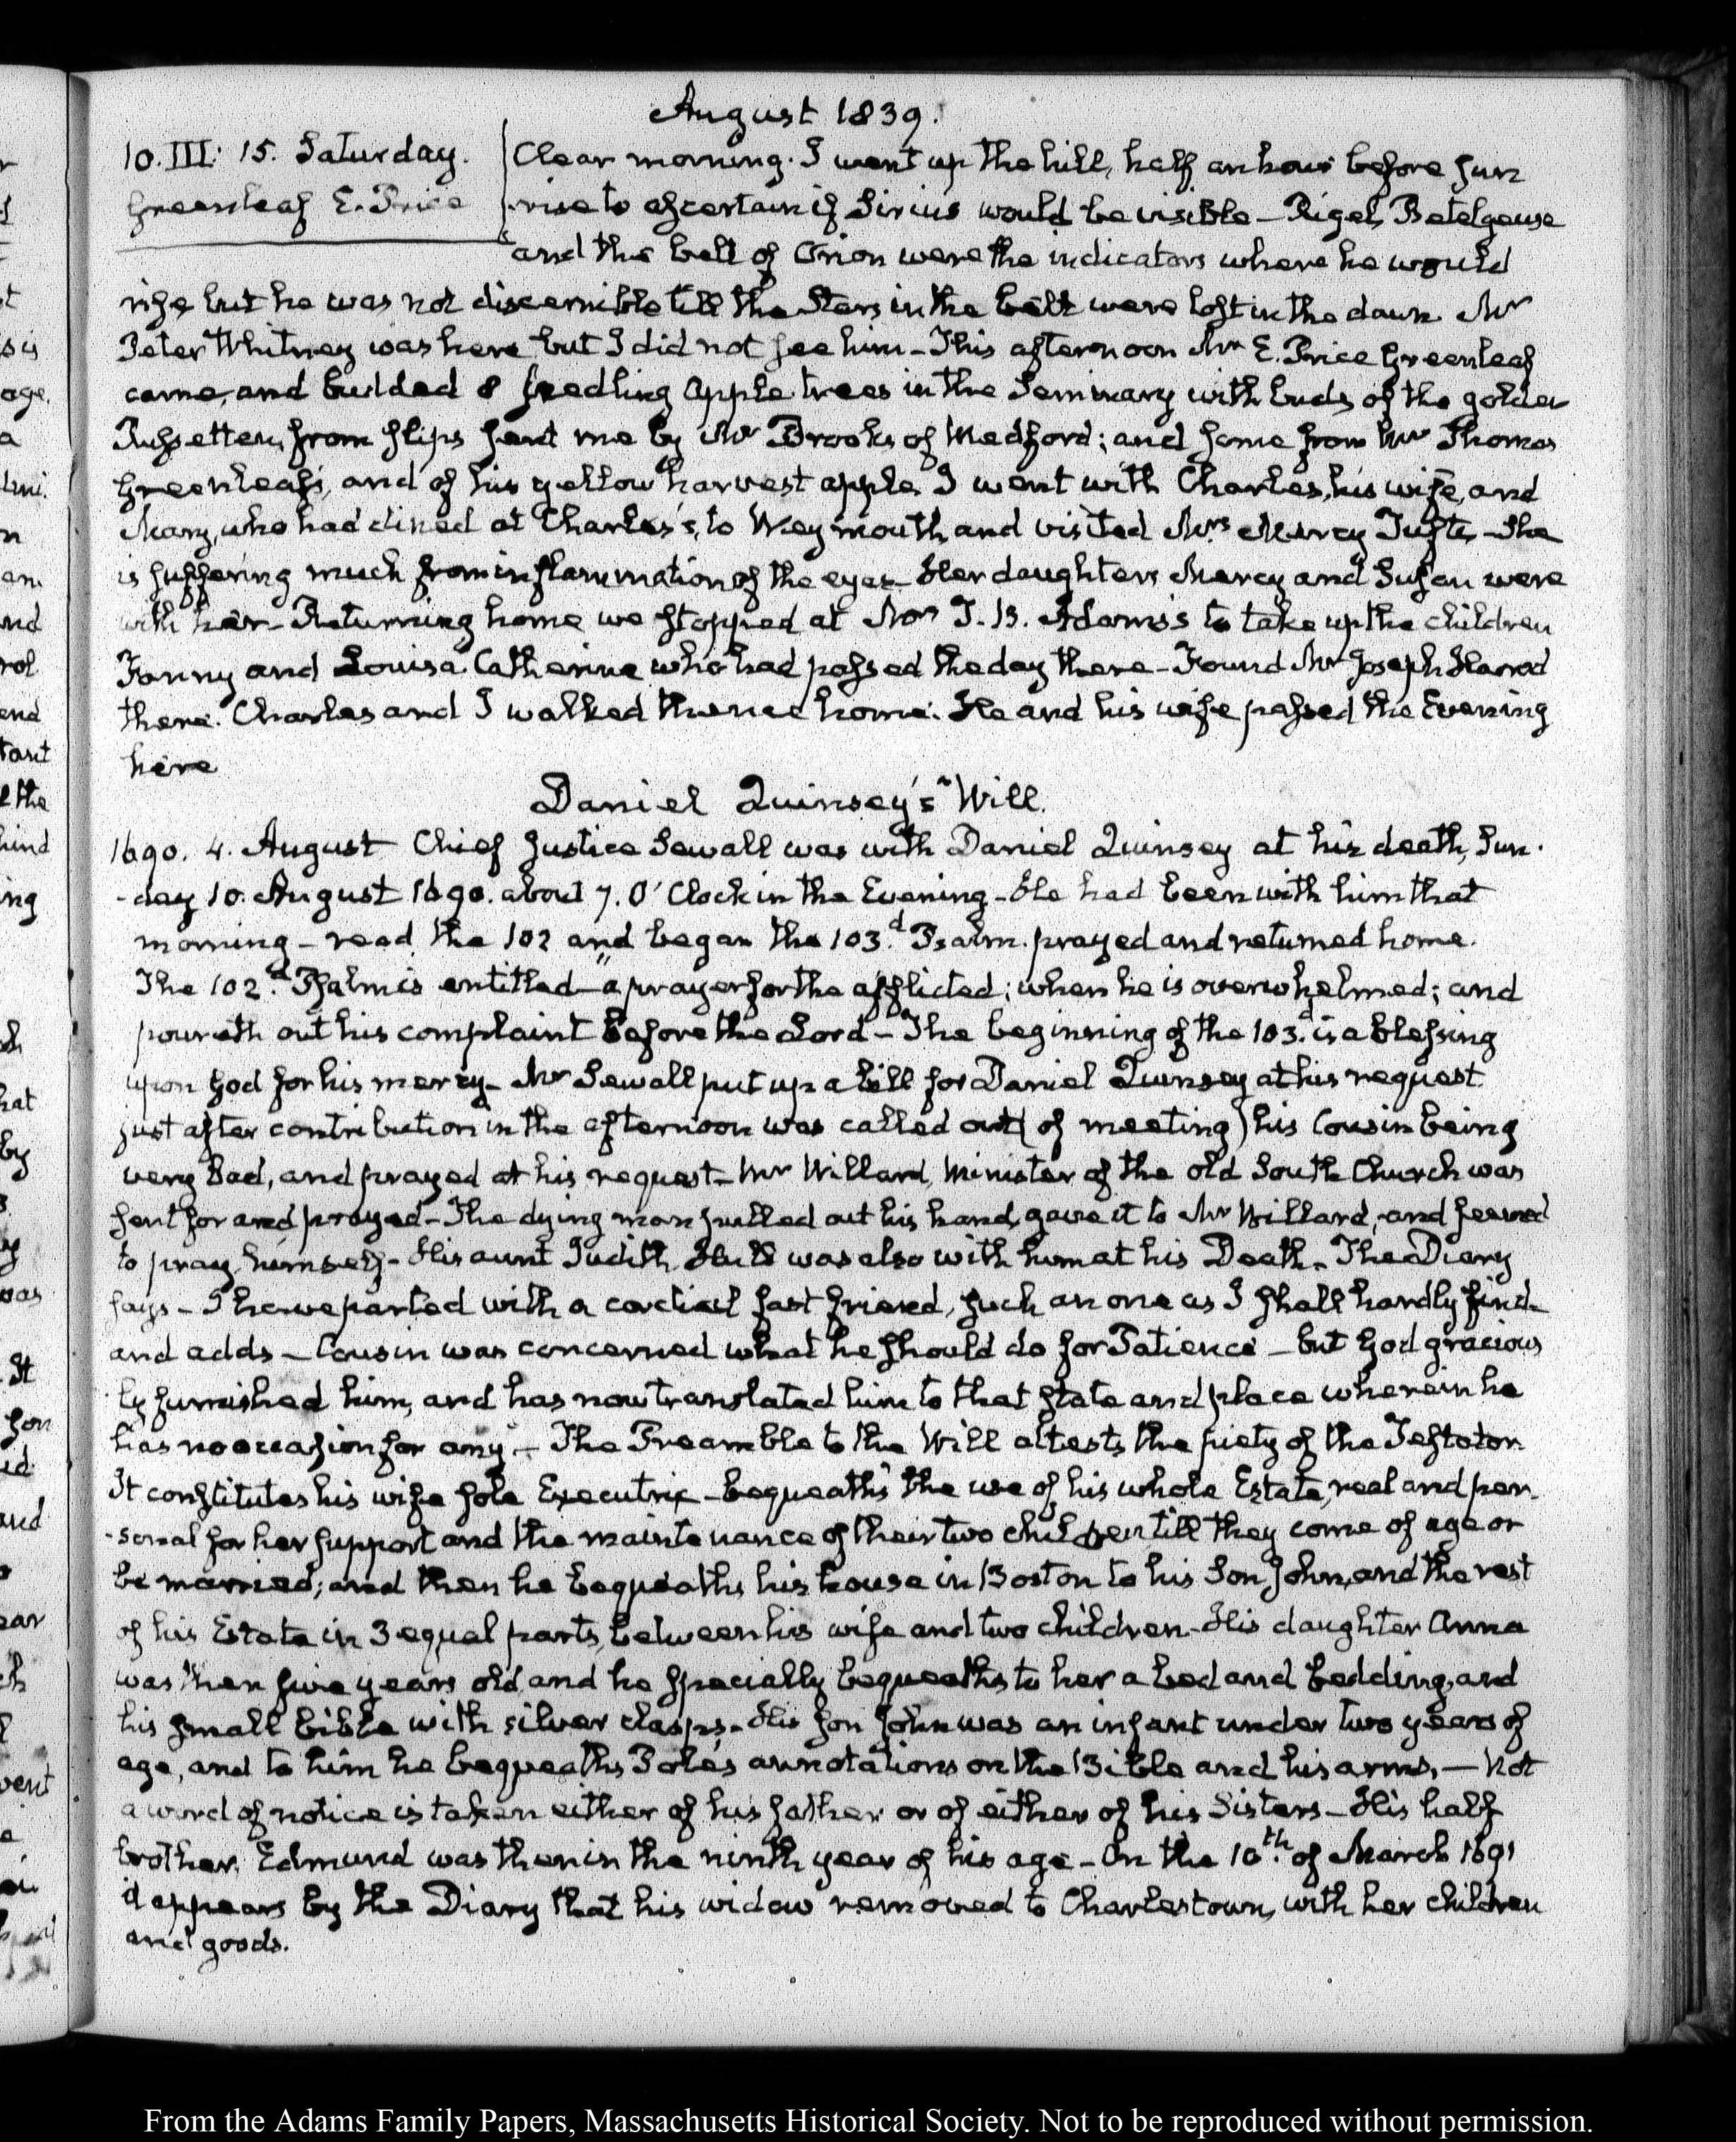 August 1839.
10. III: 15. Saturday.
Greenleaf E. Price
Clear morning. I went up the hill, half an hour before Sun
rise to ascertain if Sirius would be visible — Rigel, Betelgeuse
and the belt of Orion were the indicators where he would
rise but he was not discernible till the Stars in the belt were lost in the dawn. Mr
Peter Whitney was here but I did not see him — This afternoon Mr E. Price Greenleaf
came, and budded 8 seedling apple trees in the Seminary with buds of the golden
Russetten, from slips sent me by Mr Brooks of Medford; and some from Mr Thomas
Greenleaf's, and of his yellow harvest apple. I went with Charles, his wife, and
Mary, who had dined at Charles's, to Weymouth and visited Mrs Mercy Tufts — She
is suffering much from inflammation of the eyes — Her daughters Mercy and Susan were
with her — Returning home we stopped at Mrs T. B. Adams's to take up the children
Fanny and Louisa Catherine who had passed the day there — Found Mr Joseph Harrod
there. Charles and I walked thence home. He and his wife passed the Evening
here
Daniel Quinsey's Will.
1690. 4. August Chief Justice Sewall was with Daniel Quinsey at his death, Sun-
-day 10. August 1690. about 7. O'Clock in the Evening — He had been with him that
morning — read the 102 and began the 103.d Psalm. prayed and returned home.
The 102.d Psalm is entitled — "a prayer for the afflicted; when he is overwhelmed; and
poureth out his complaint before the Lord — The beginning of the 103.d is a blessing
upon God for his mercy — Mr Sewall put up a bill for Daniel Quinsey at his request
just after contribution in the afternoon was called out (of meeting) his Cousin being
very Bad, and prayed at his request — Mr Willard, Minister of the old South Church was
sent for and prayed — The dying man pulled out his hand, gave it to Mr Willard, and seemed
to pray himself — His aunt Judith Hull was also with him at his Death — The Diary
says — I have parted with a cordial fast friend, such an one as I shall hardly find —
and adds — Cousin was concerned what he should do for Patience — but God gracious
ly furnished him, and has now translated him to that state and place wherein he
has no occasion for any — The Preamble to the Will attests the piety of the Testator
It constitutes his wife sole Executrix — bequeaths the use of his whole Estate, real and per-
-sonal for her support and the maintenance of their two children till they come of age or
be married; and then he bequeaths his house in Boston to his Son John, and the rest
of his Estate in 3 equal parts, between his wife and two children — His daughter Anna
was then five years old, and he specially bequeaths to her a bed and bedding, and
his small bible with silver clasps — His son John was an infant under two years of
age, and to him he bequeaths Pole's annotations on the Bible and his arms, — Not
a word of notice is taken either of his father or of either of his Sisters — His half
brother, Edmund was then in the ninth year of his age — On the 10th. of March 1691
it appears by the Diary that his widow removed to Charlestown, with her children
and goods.
From the Adams Family Papers, Massachusetts Historical Society. Not to be reproduced without permission.